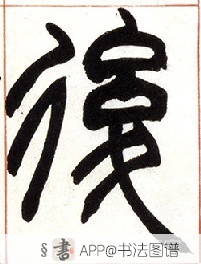 後
§書 APP@书法图谱